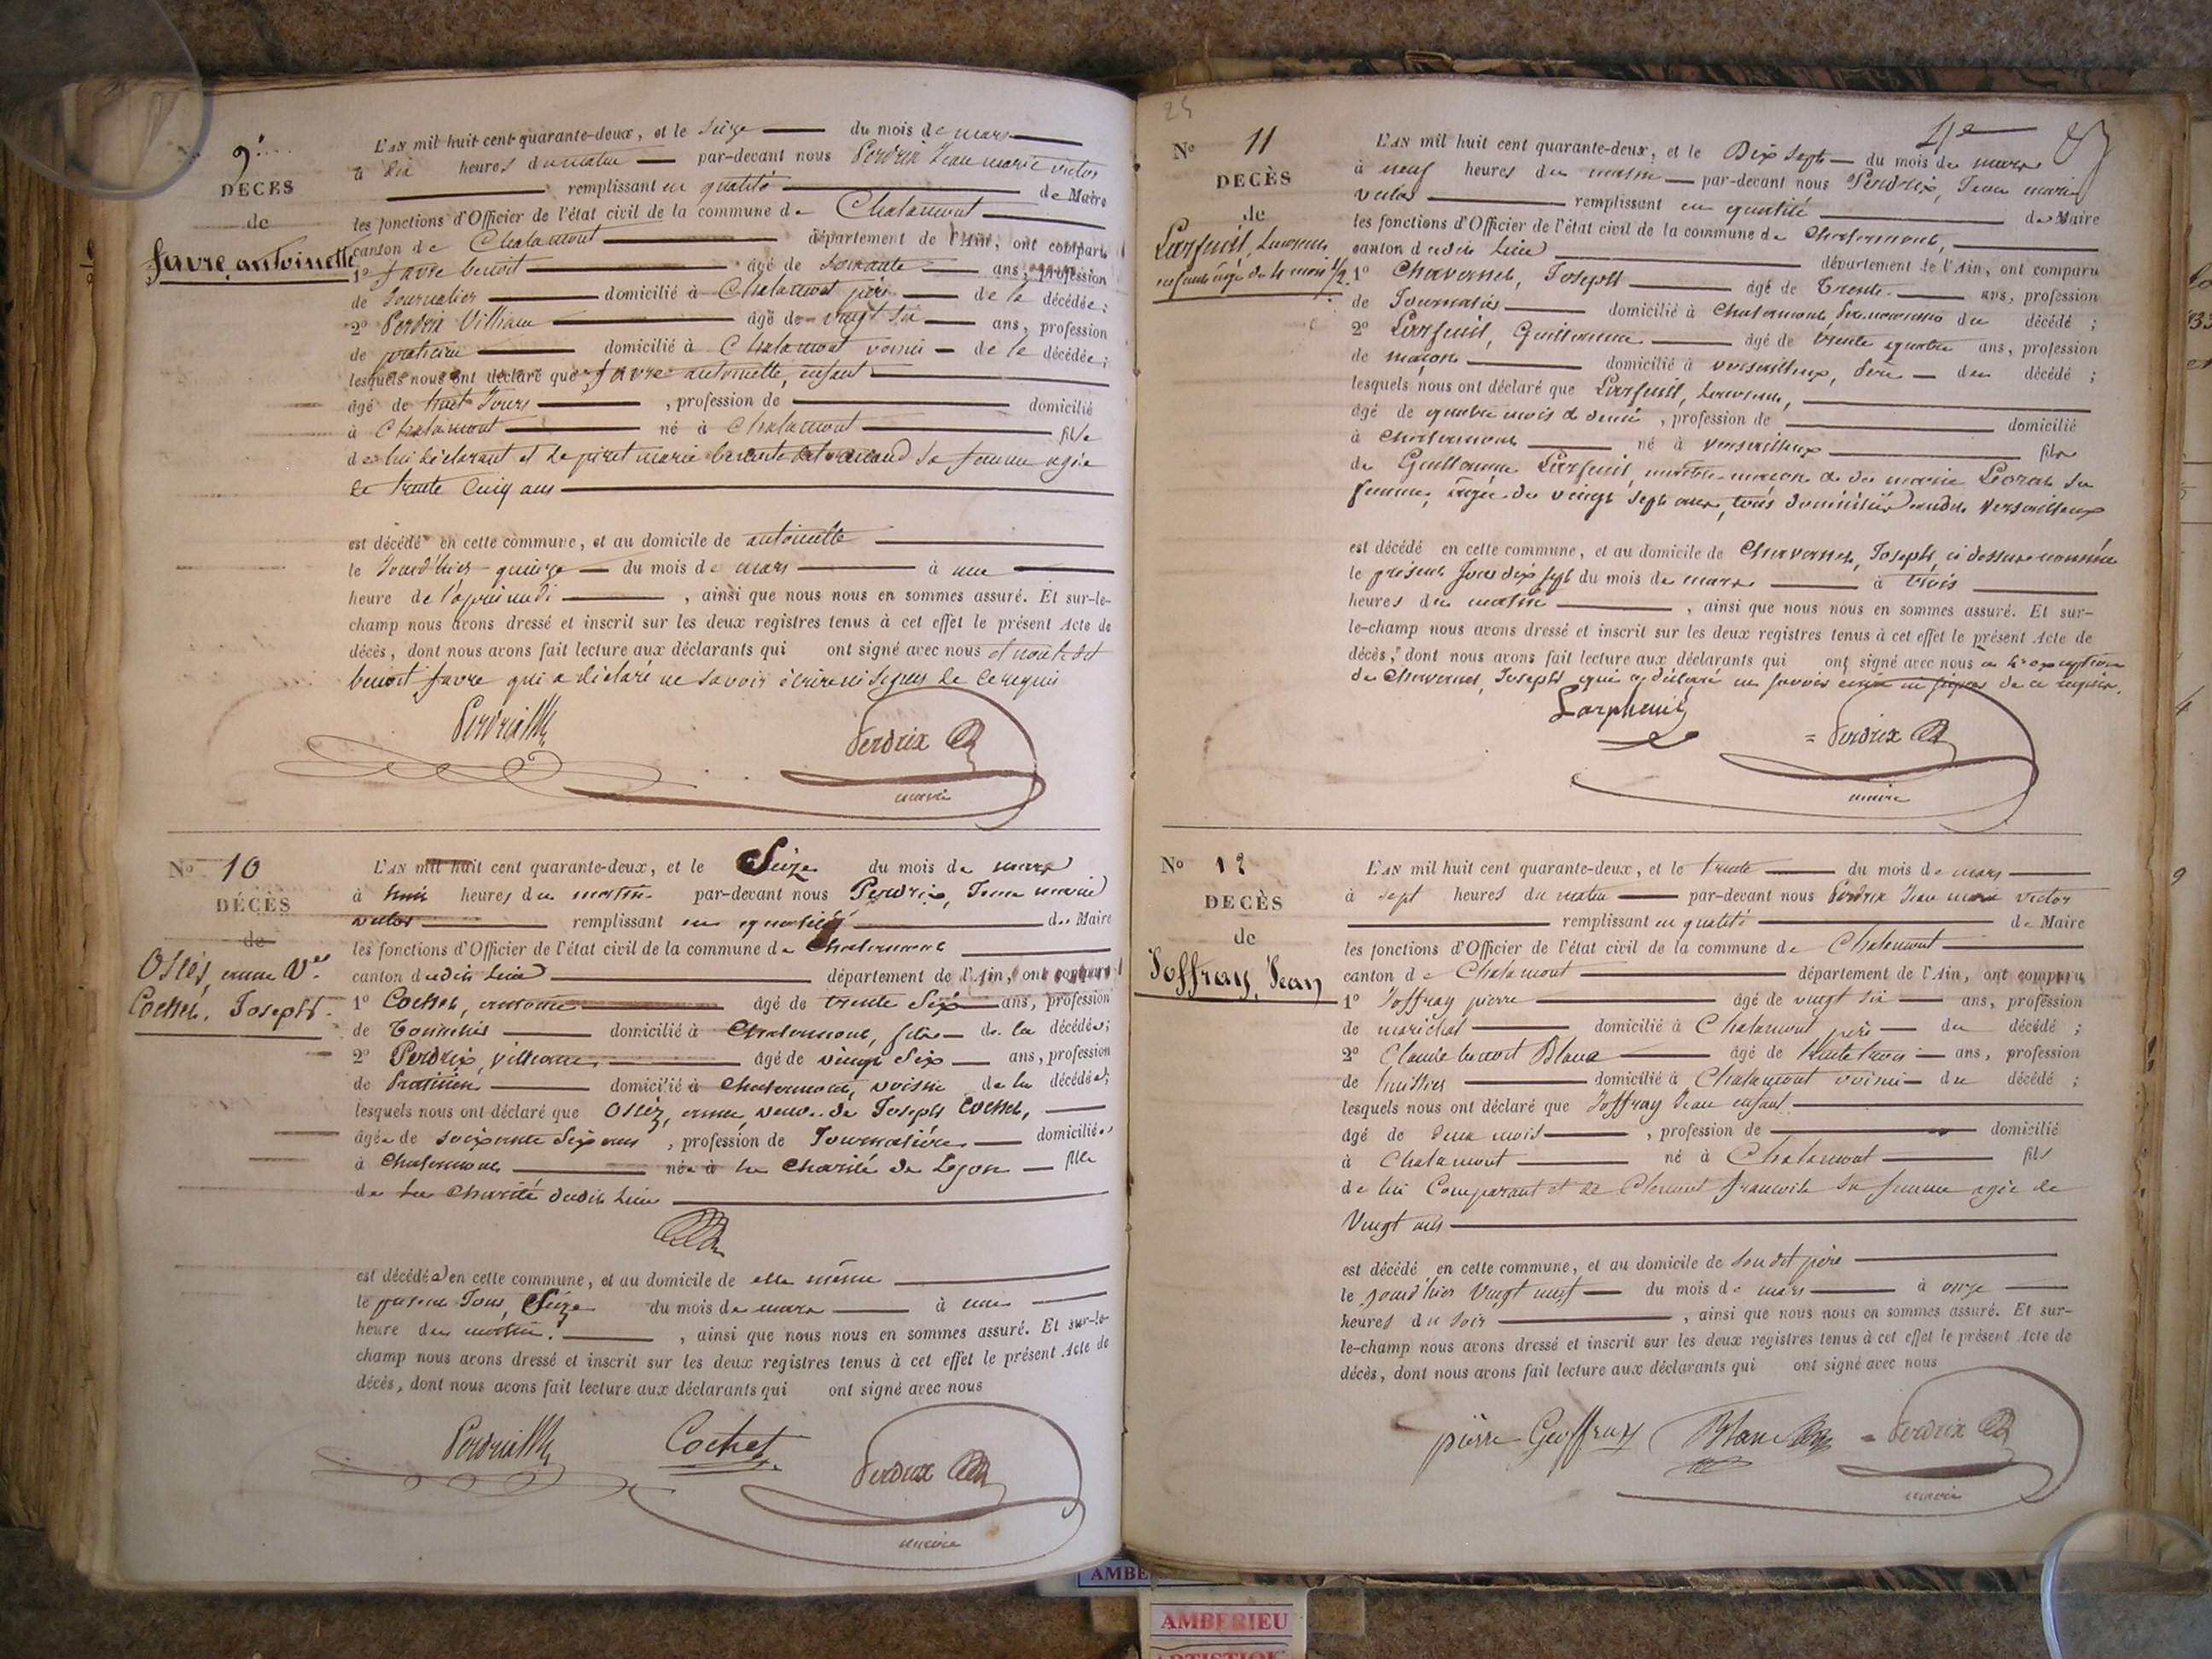 9.
DECÈS
de
favre antoinette
L'AN mil huit cent quarante-deux, et le seize du mois de mars
à dix heures du matin par-devant nous Perdrix Jean marie victor
remplissant en qualité de Maire
les fonctions d'Officier de l'état civil de la commune de Chalamont
canton de Chalamont département de l'Ain, ont comparu
1° favre benoit âgé de soixante ans, profession
de Journalier domicilié à Chalamont père de la décédée;
2° Perdrix Villiam âgé de vingt six ans, profession
de praticien domicilié à Chalamont voisin de la décédée;
lesquels nous ont déclaré que favre antoinette, enfant
âgé de huit Jours, profession de domicilié
à Chalamont né à Chalamont fille
de lui déclarant et de marie sa femme agée
de trente cinq ans
est décédé en cette commune, et au domicile de antoinette
le Jourd'hier quinze du mois de mars à une
heure de l'après midi, ainsi que nous nous en sommes assuré. Et sur-le-
champ nous avons dressé et inscrit sur les deux registres tenus à cet effet le présent Acte de
décès, dont nous avons fait lecture aux déclarants qui ont signé avec nous et non ledit
benoit favre qui a déclaré ne savoir écrire ni signer de ce requis
Perdrix
Perdrix
maire
N° 10
DÉCÈS
de
Osiés, anne Ve.
Cochet, Joseph.
L'AN mil huit cent quarante-deux, et le Seize du mois de mars
à heures du matin par-devant nous Perdrix, Jean marie
victor remplissant en qualité de Maire
les fonctions d'Officier de l'état civil de la commune de Chalamont
canton dudit Lieu département de l'Ain, ont comparu
1° Cochet, antoine âgé de trente Six ans, profession
de Tonnelier domicilié à Chalamont, fils de la décédée;
2° Perdrix, villiam, âgé de vingt Six ans, profession
de Praticien domicilié à Chalamont, voisin de la décédée;
lesquels nous ont déclaré que Osiéz, anne, veuve de Joseph Cochet,
âgée de soixante Six ans, profession de Journalière domiciliée
à Chalamont née à la Charité de Lyon fille
de la Charité dudit Lieu
est décédée en cette commune, et au domicile de elle même
le présent Jour, Seize du mois de mars à une
heure du matin, ainsi que nous nous en sommes assuré. Et sur-le-
champ nous avons dressé et inscrit sur les deux registres tenus à cet effet le présent Acte de
décès, dont nous avons fait lecture aux déclarants qui ont signé avec nous
Perdrix
Cochet
Perdrix
maire
25
N° 11
DECÈS
de
Larfeuil, Laurent,
enfant âgé de 4 mois 1/2.
L'AN mil huit cent quarante-deux, et le Dix Sept du mois de mars
à neuf heures du matin par-devant nous Perdrix, Jean marie
victor remplissant en qualité de Maire
les fonctions d'Officier de l'état civil de la commune de Chalamont,
canton dudit Lieu département de l'Ain, ont comparu
1° Chavernet, Joseph âgé de Trente ans, profession
de Journalier domicilié à Chalamont, du décédé;
2° Larfeuil, Guillaume âgé de trente quatre ans, profession
de maçon domicilié à versailleux, père du décédé;
lesquels nous ont déclaré que Larfeuil, Laurent,
âgé de quatre mois & demi, profession de domicilié
à Chalamont né à versailleux fils
de Guillaume Larfeuil, maître-maçon & de marie sa
femme, âgée de vingt sept ans, tous domiciliés audit versailleux
est décédé en cette commune, et au domicile de Chavernet, Joseph, ci dessus nommé
le présent Jour dix sept du mois de mars à trois
heures du matin, ainsi que nous nous en sommes assuré. Et sur-
le-champ nous avons dressé et inscrit sur les deux registres tenus à cet effet le présent Acte de
décès, dont nous avons fait lecture aux déclarants qui ont signé avec nous à l'exception
de Chavernet, Joseph qui a déclaré ne savoir écrire ni signer de ce requis.
Larpheuil
Perdrix
maire
N° 12
DECÈS
de
Joffray, Jean
L'AN mil huit cent quarante-deux, et le trente du mois de mars
à sept heures du matin par-devant nous Perdrix Jean marie victor
remplissant en qualité de Maire
les fonctions d'Officier de l'état civil de la commune de Chalamont
canton de Chalamont département de l'Ain, ont comparu
1° Joffray pierre âgé de vingt six ans, profession
de maréchal domicilié à Chalamont père du décédé;
2° Claude benoit Blanc âgé de trente trois ans, profession
de huissier domicilié à Chalamont voisin du décédé;
lesquels nous ont déclaré que Joffray Jean enfant
âgé de deux mois, profession de domicilié
à Chalamont né à Chalamont fils
de lui Comparant et de Clement sa femme agée de
Vingt ans
est décédé en cette commune, et au domicile de son dit père
le Jourd'hier Vingt neuf du mois de mars à onze
heures du soir, ainsi que nous nous en sommes assuré. Et sur-
le-champ nous avons dressé et inscrit sur les deux registres tenus à cet effet le présent Acte de
décès, dont nous avons fait lecture aux déclarants qui ont signé avec nous
pierre Geoffray
Blanc
Perdrix
maire
AMBE
AMBERIEU